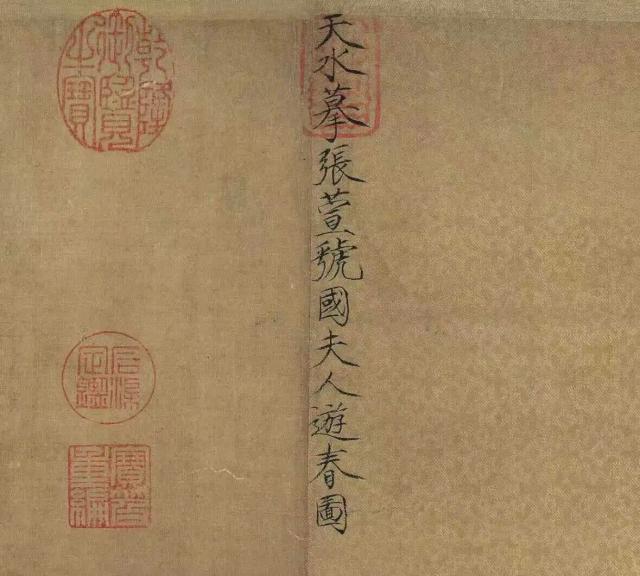 天水摹張萱虢國夫人遊春圖
乾隆
御覽
之寶
石渠
定鑑
寶笈
重編